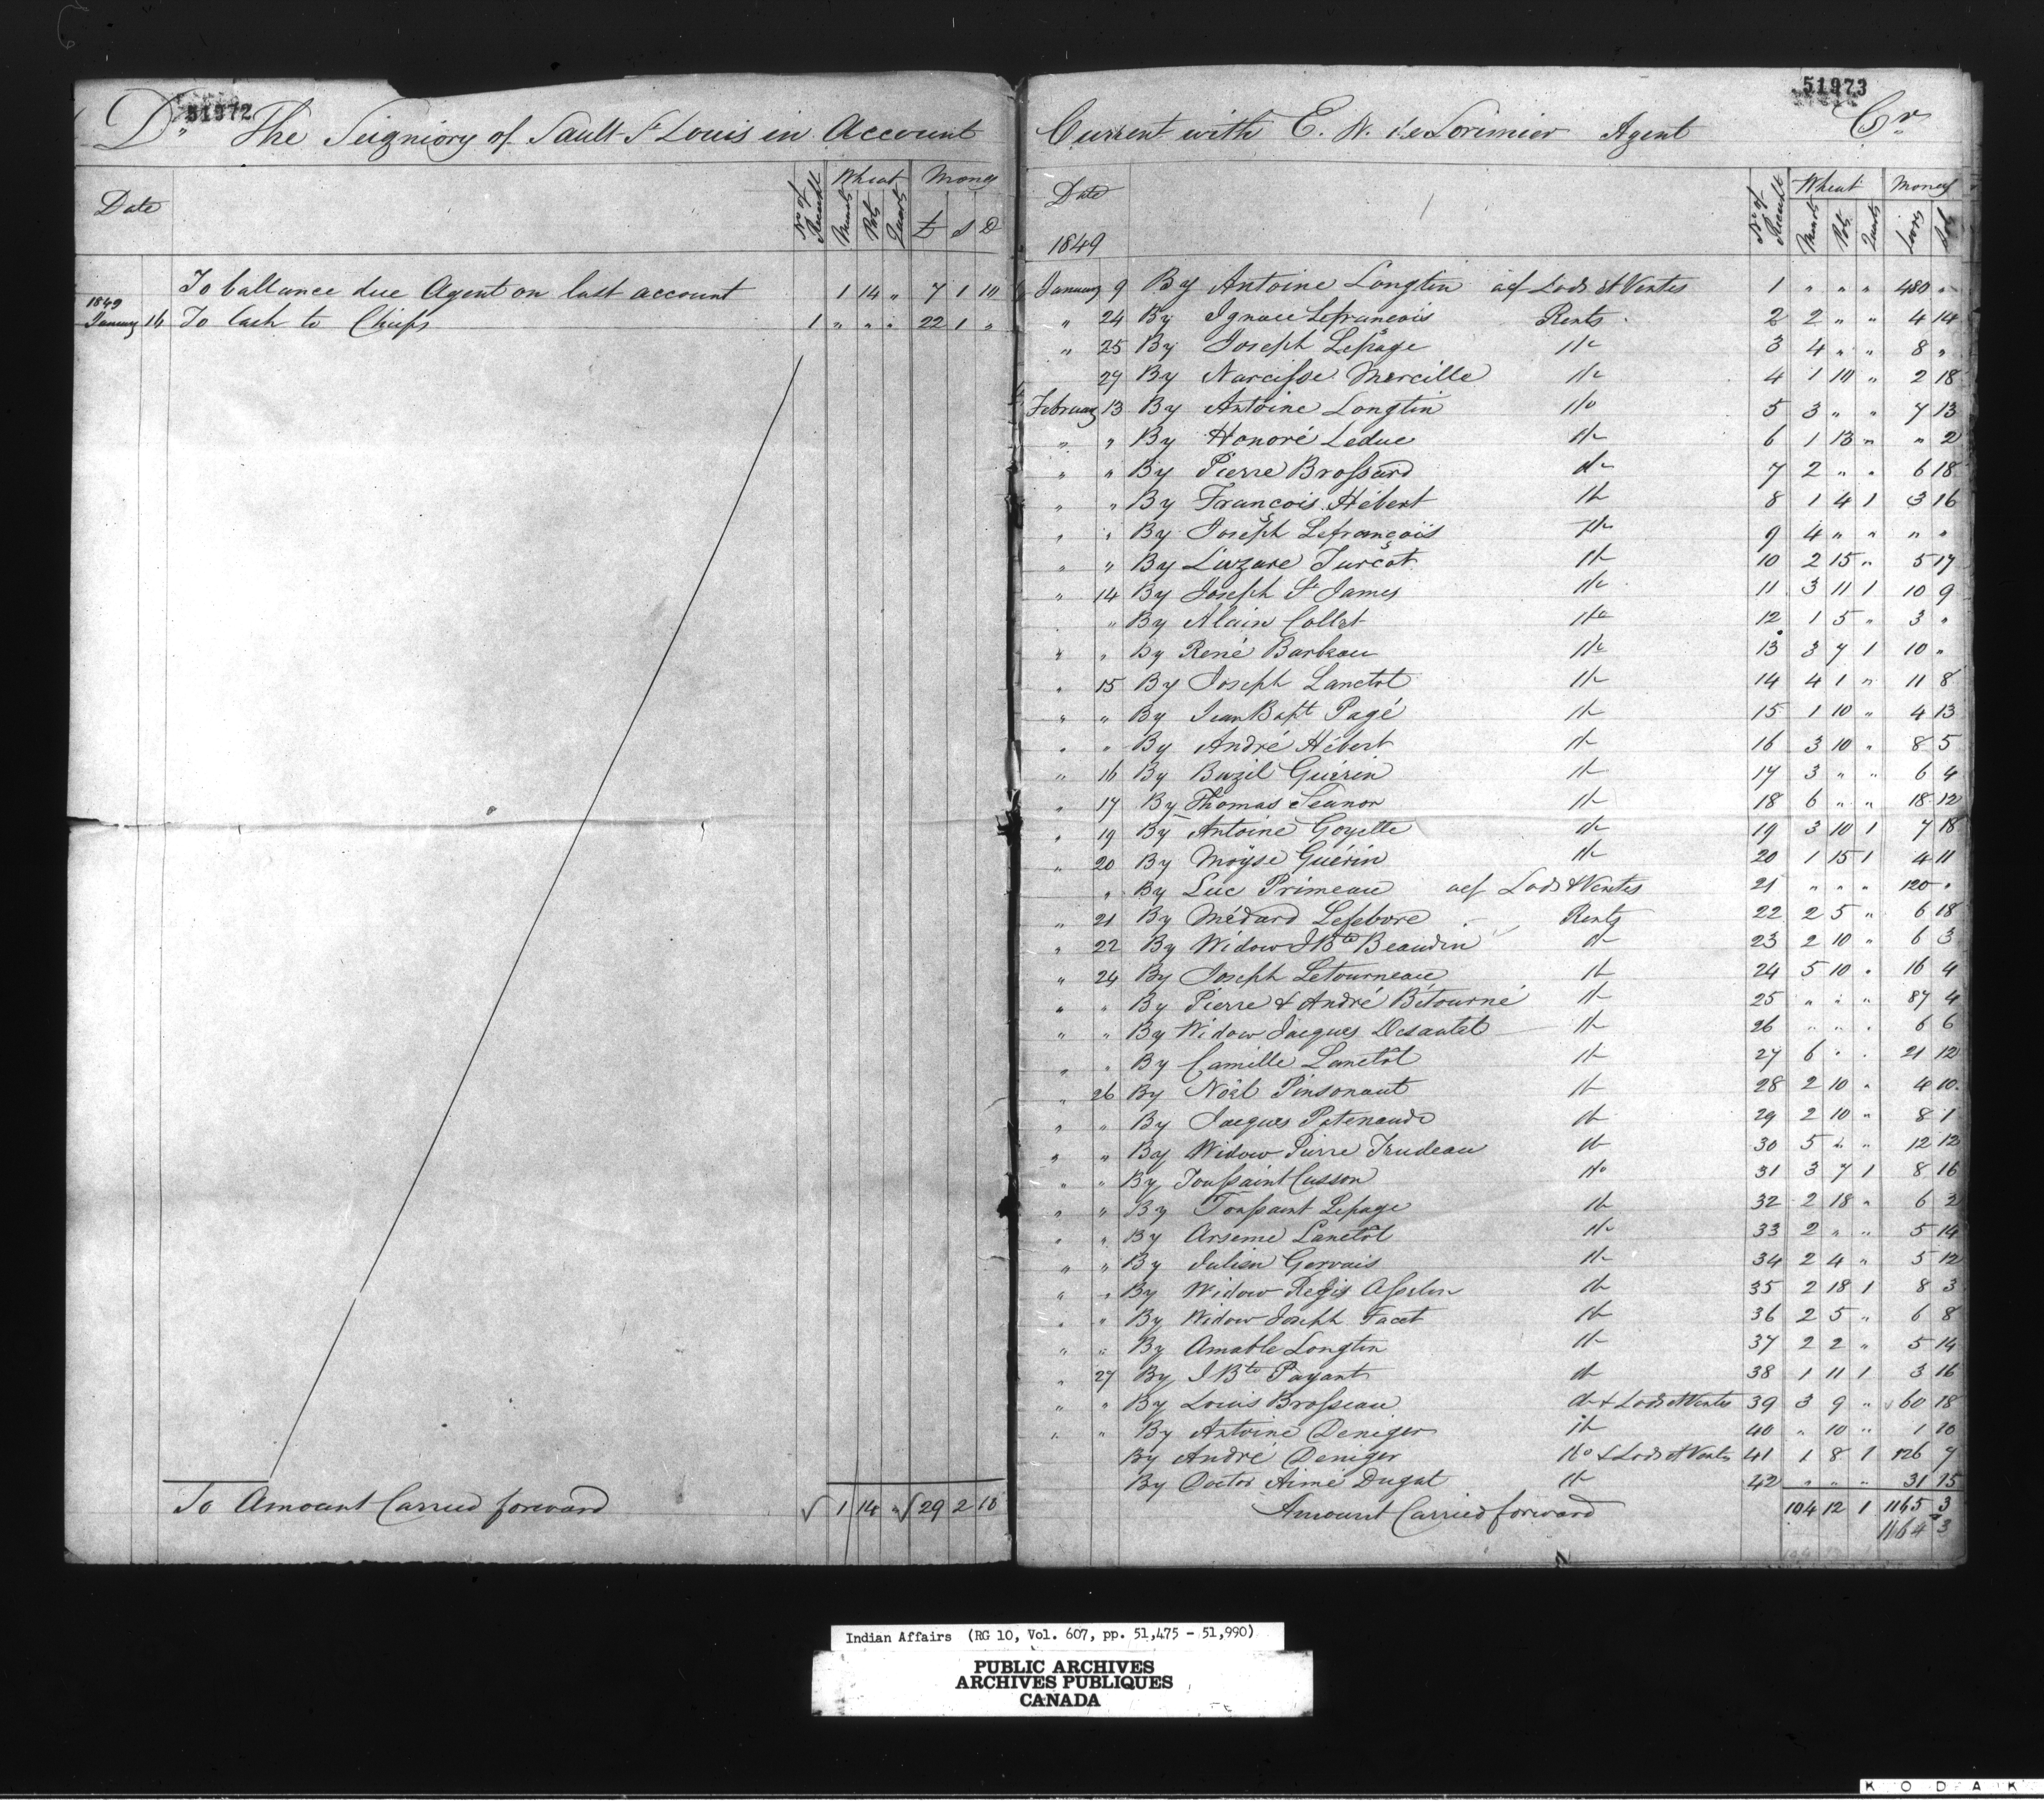 51972
Dr. The Seigniory of Sault St Louis in Account
Date No. of Receipt Wheat Money
Minots Pots Quarts £ S D
To ballance due Agent on last account 1 14 " 7 1 10
1849
January 14 To Cash to Chiefs 1 " " " 22 1 "
To Amount Carried forward √ 1 14 " √ 29 2 10
51973
Current with E. N. de Lorimier Agent Cr.
Date No. of Receipt Wheat Money
Minots Pots Quarts Livres Sols
1849
January 9 By Antoine Longtin acf Lods et Ventes 1 " " " 480 "
" 24 By Ignace Lefrançois Rents 2 2 " " 4 14
" 25 By Joseph Lepage do 3 4 " " 8 "
29 By Narcisse Mercille do 4 1 10 " 2 18
February 13 By Antoine Longtin do 5 3 " " 7 13
" " By Honoré Leduc do 6 1 13 " " 2
" " By Pierre Brossard do 7 2 " " 6 18
" " By François Hébert do 8 1 4 1 3 16
" " By Joseph Lefrançois do 9 4 " " " "
" " By Lazare Turcot do 10 2 15 " 5 17
" 14 By Joseph St James do 11 3 11 1 10 9
" By Alain Collet do 12 1 5 " 3 "
" " By René Barbeau do 13 3 7 1 10 "
" 15 By Joseph Lanctot do 14 4 1 " 11 8
" " By Jean Bapt Pagé do 15 1 10 " 4 13
" " By André Hébert do 16 3 10 " 8 5
" 16 By Bazil Guérin do 17 3 " " 6 4
" 17 By Thomas Leanor do 18 6 " " 18 12
" 19 By Antoine Goyette do 19 3 10 1 7 18
" 20 By Moyse Guérin do 20 1 15 1 4 11
" By Luc Primeau acf Lods & Ventes 21 " " " 120 "
" 21 By Médard Lefebvre Rents 22 2 5 " 6 18
" 22 By Widow J Bte Beaudin do 23 2 10 " 6 3
" 24 By Joseph Letourneau do 24 5 10 " 16 4
" " By Pierre & André Bétourné do 25 " " " 87 4
" " By Widow Jacques Desautel do 26 " " " 6 6
" " By Camille Lanctôt do 27 6 " " 21 12
" 26 By Noël Pinsonaut do 28 2 10 " 4 10
" " By Jacques Patenaude do 29 2 10 " 8 1
" " By Widow Pierre Trudeau do 30 5 " " 12 12
" " By Toussaint Cusson do 31 3 7 1 8 16
" " By Toussaint Lepage do 32 2 18 " 6 2
" " By Arseme Lanctôt do 33 2 " " 5 14
" " By Julien Gervais do 34 2 4 " 5 12
" " By Widow Regis Asselin do 35 2 18 1 8 3
" " By Widow Joseph Facet do 36 2 5 " 6 8
" " By Amable Longtin do 37 2 2 " 5 14
" 27 By J Bte Payant do 38 1 11 1 3 16
" " By Louis Brosseau do & Lods et Ventes 39 3 9 " 60 18
" " By Antoine Deniger do 40 " 10 " 1 10
By André Deniger do & Lods et Ventes 41 1 8 1 126 7
By Doctor Aimé Dugat do 42 " " " 31 15
Amount Carried forward 104 12 1 1165 3
1164 3
Indian Affairs (RG 10, Vol. 607, pp. 51,475 - 51,990)
PUBLIC ARCHIVES
ARCHIVES PUBLIQUES
CANADA
KODAK